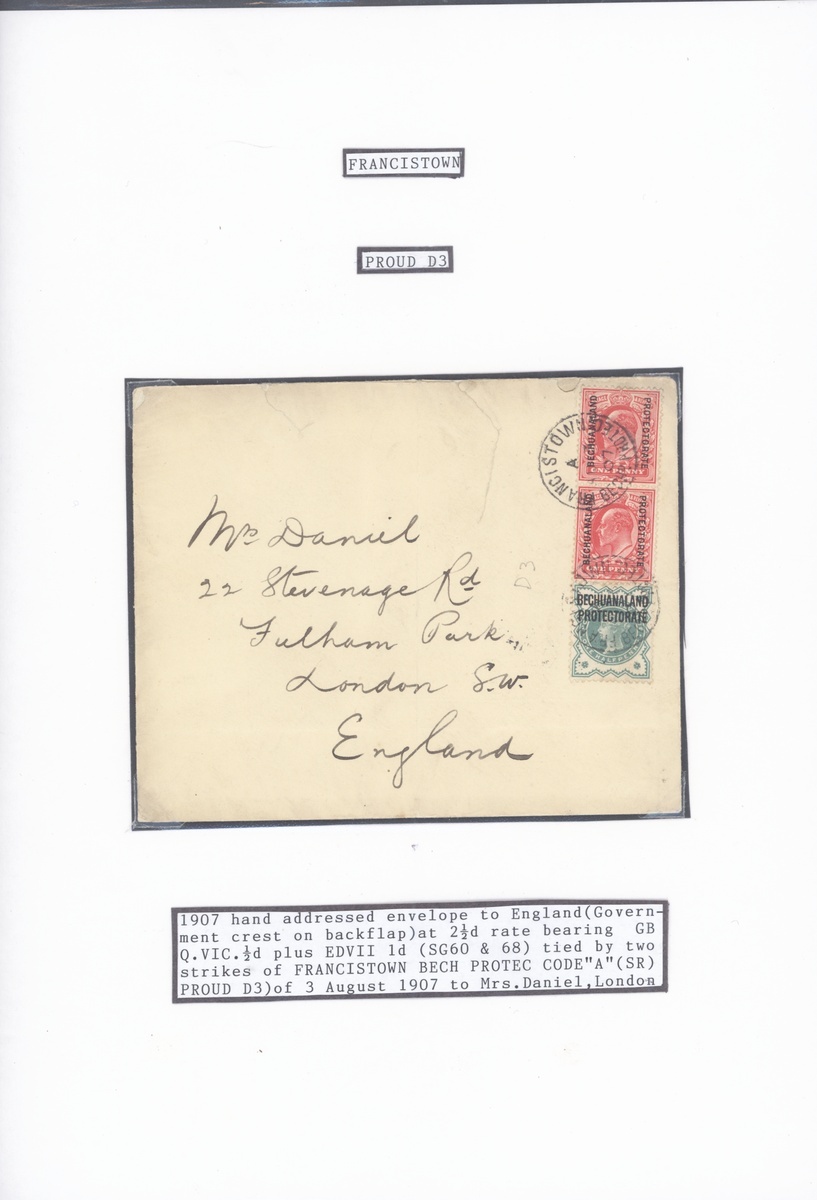 FRANCISTOWN
PROUD D3
BECHUANALAND PROTECTORATE
ONE PENNY
FRANCISTOWN
A
BECHUANALAND PROTECTORATE
ONE PENNY
BECHUANALAND
PROTECTORATE
Mrs Daniel
22 Stevenage Rd
D3
Fulham Park
London S.W.
England
1907 hand addressed envelope to England(Govern-
ment crest on backflap)at 2½d rate bearing GB
Q.VIC.½d plus EDVII 1d (SG60 & 68) tied by two
strikes of FRANCISTOWN BECH PROTEC CODE"A"(SR)
PROUD D3)of 3 August 1907 to Mrs.Daniel,London